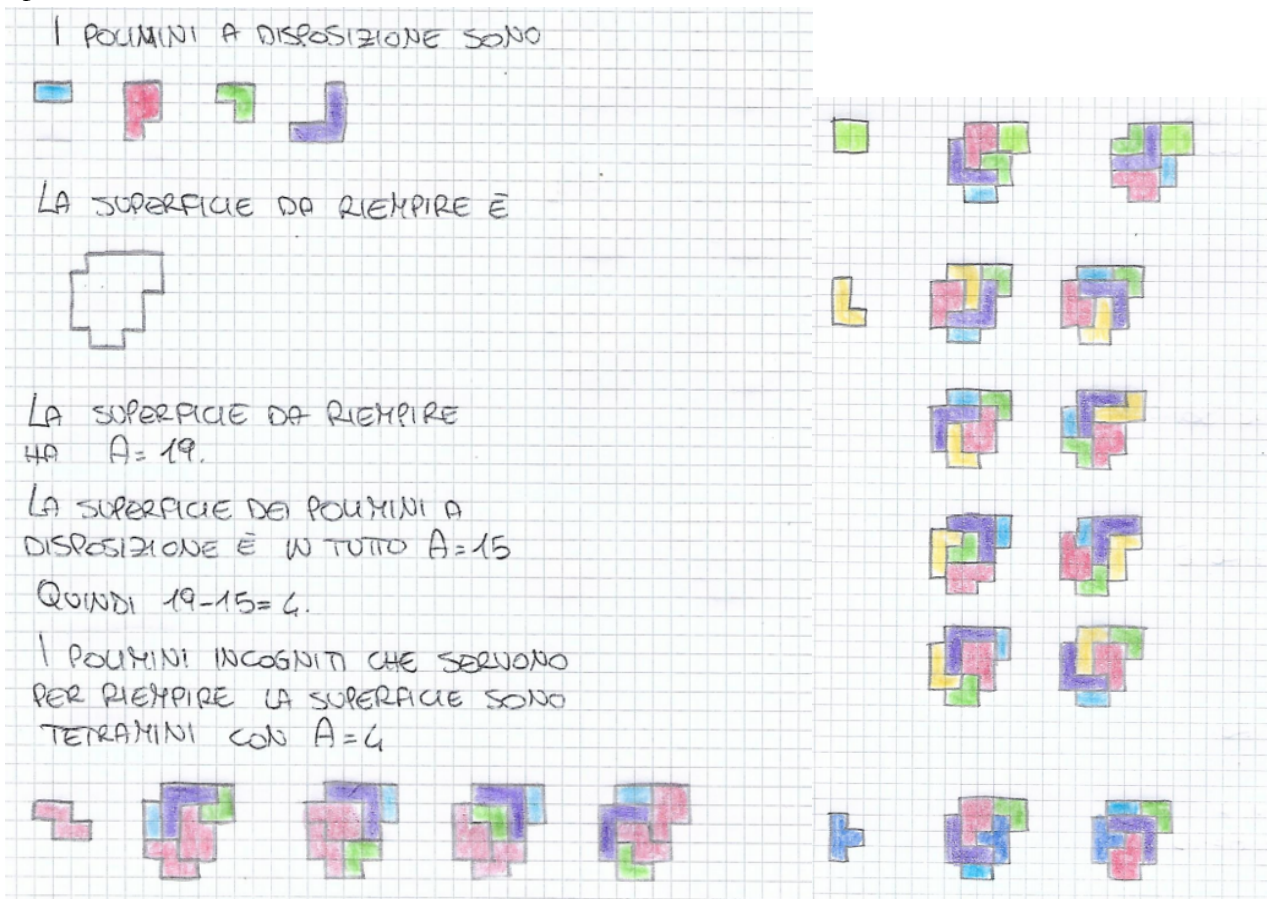 I POLIMINI A DISPOSIZIONE SONO
LA SUPERFICIE DA RIEMPIRE È
LA SUPERFICIE DA RIEMPIRE
HA A= 19.
LA SUPERFICIE DEI POLIMINI A
DISPOSIZIONE È IN TUTTO A=15
QUINDI 19-15= 4.
I POLIMINI INCOGNITI CHE SERVONO
PER RIEMPIRE LA SUPERFICIE SONO
TETRAMINI CON A=4